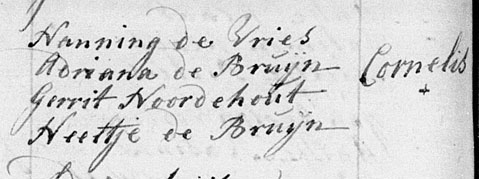 Nanning de Vries
Adriana de Bruÿn
Gerrit Noordehout
Neeltje de Bruÿn
Cornelis
+